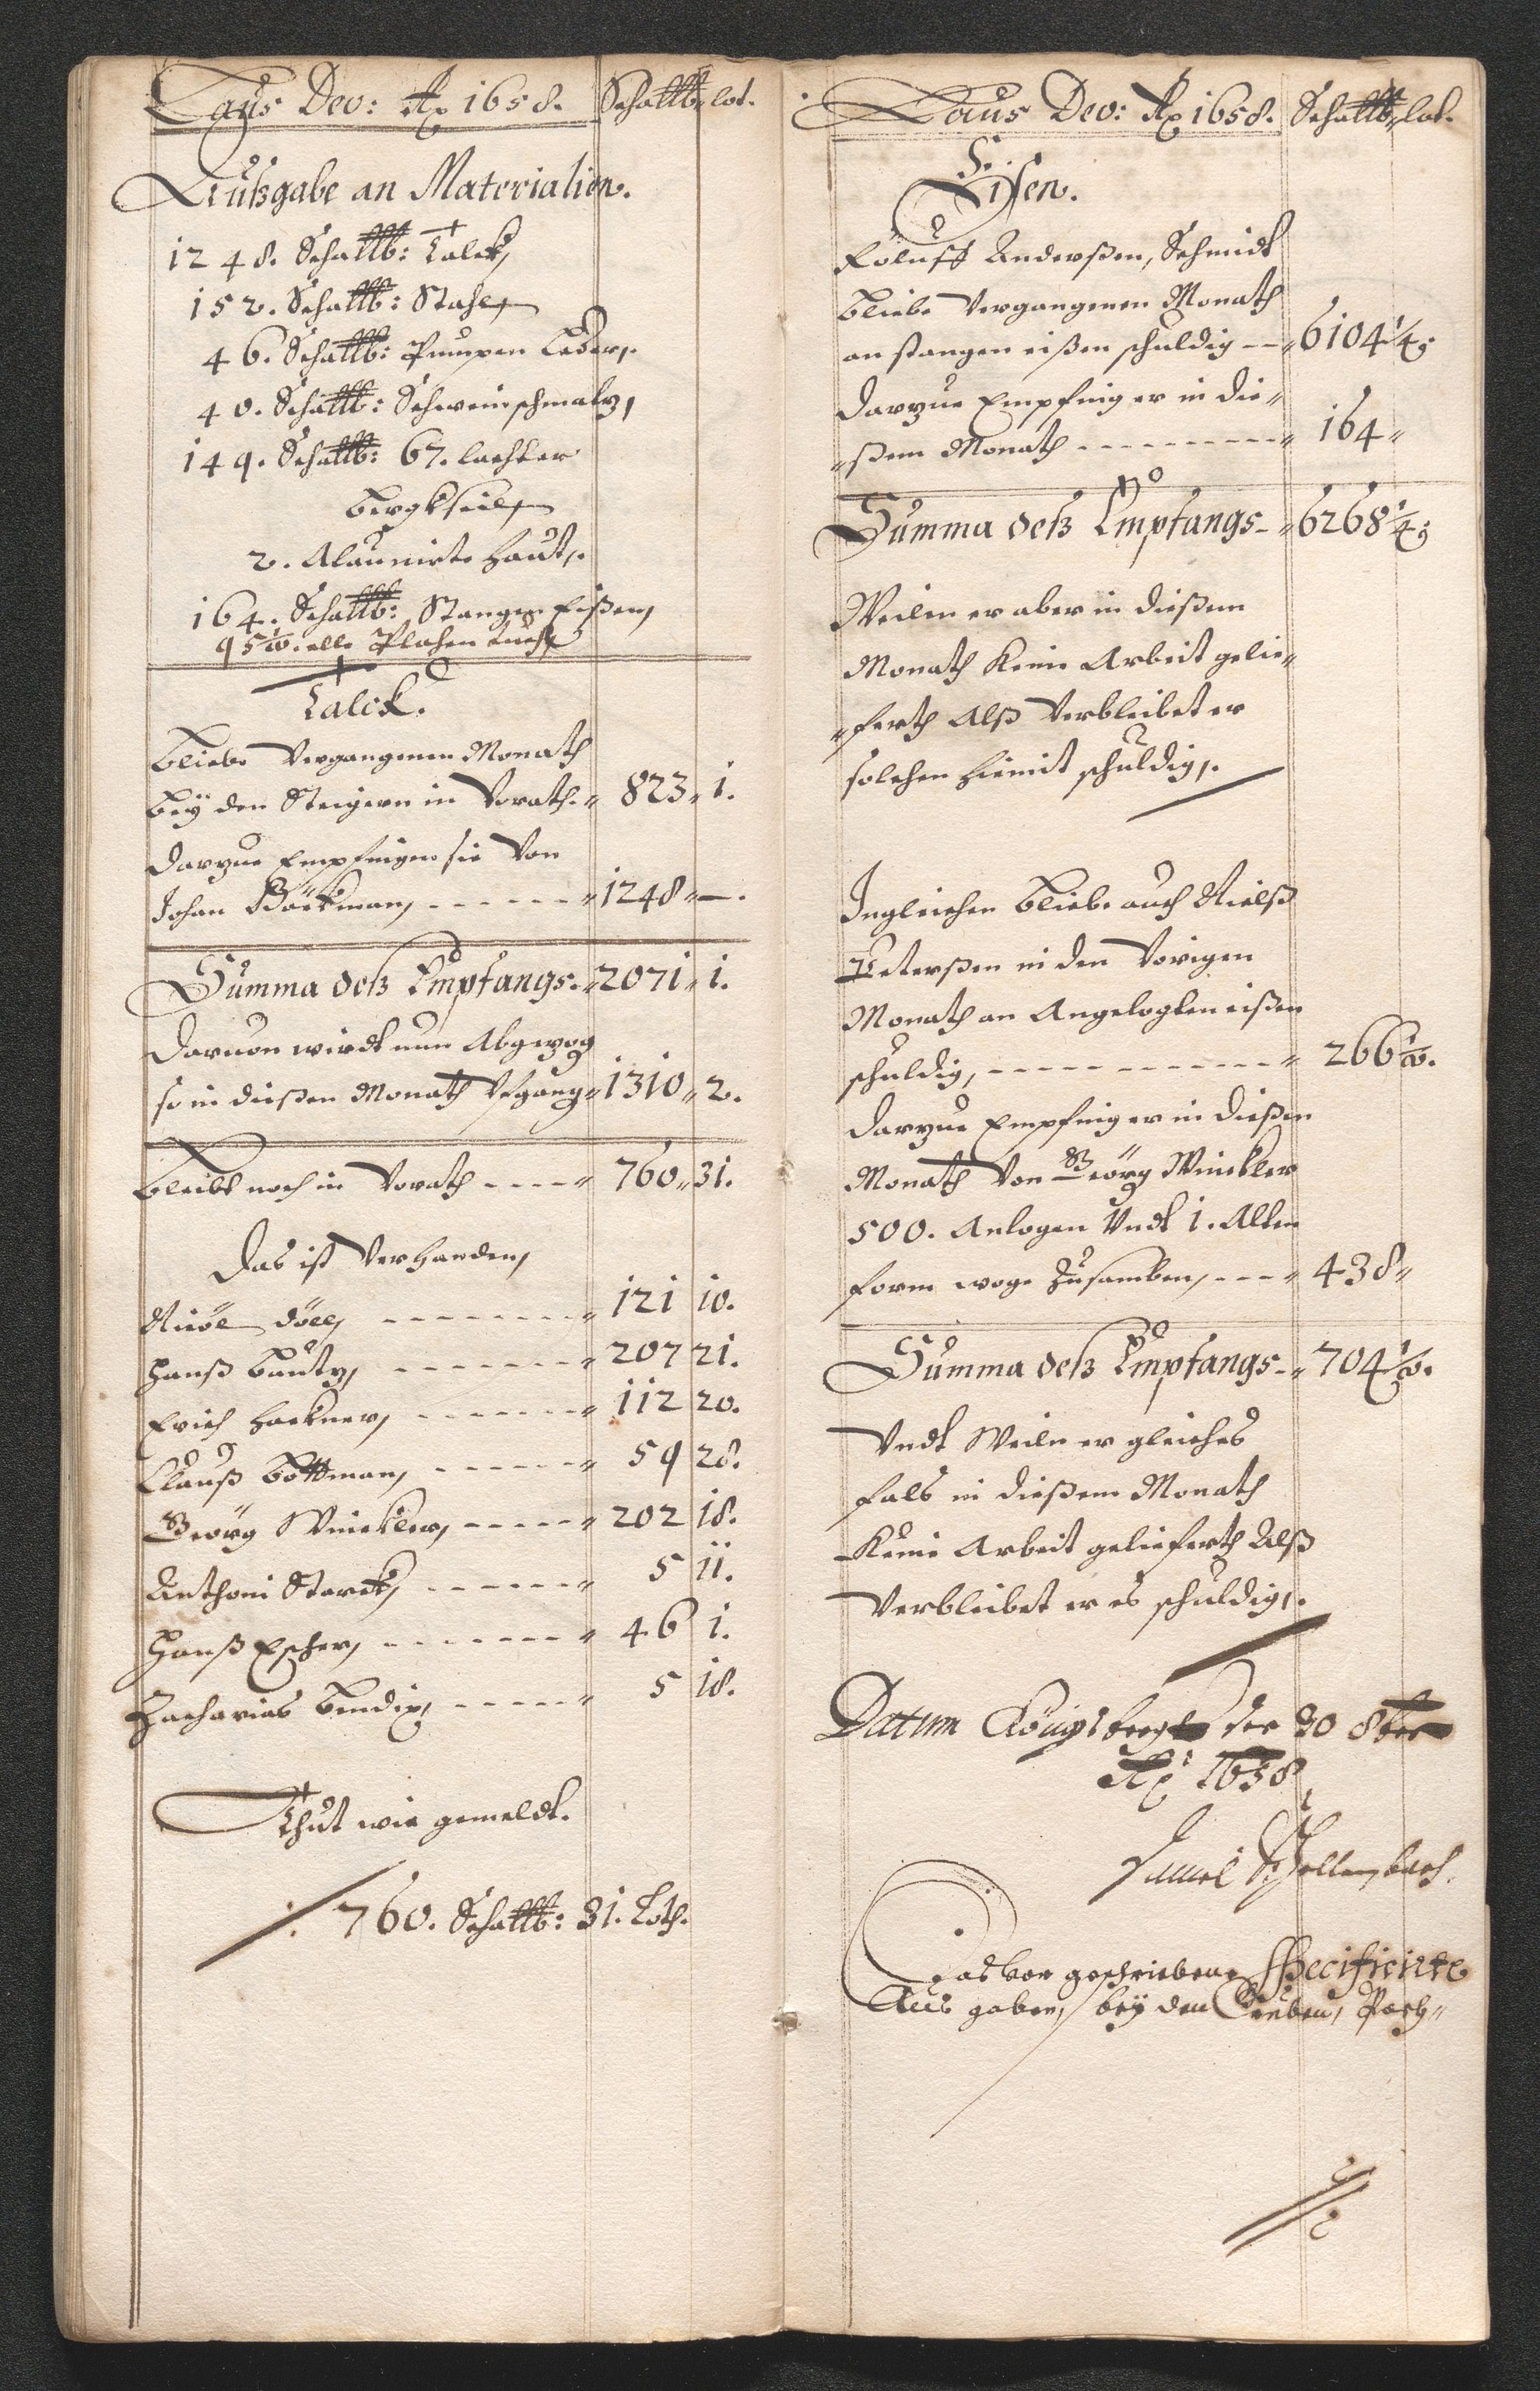 Laus Deo: Ao 1658. Schaltt: lot.
Außgabe an Materialien.
1248. Schaltt: Talck,
152. Schaltt: Stahl,
46. Schaltt: Pumpen Leder,.
40. Schaltt: Schweinschmaltz,
149. Schaltt: 67. lachter
bergkseil,
2. Alaunirte Haut,.
164. Schaltt: Stangen Eißen,
95½. elle Plahen tuch,
Talck.
Bliebe Vergangenen Monath
bey den Steigern in Vorath. " 823 " 1.
Darzue Empfingen sie Von
Johan Böckman, - - - - - - " 1248 " —.
Summa deß Empfangs. " 2071 " 1.
Daruon wirdt nun Abgezog
so in dießen Monath Vfgang " 1310 " 2.
Bleibt noch in Vorath - - - - " 760 " 31.
Das ist Verhanden,
- - - - - - - - " 121 10.
Hanß Bautz, - - - - - - - " 207 21.
Erich Hackner, - - - - - - - " 112 20.
Clauß Bottman, - - - - - - " 59 28.
Geörg Winckler, - - - - - " 202 18.
Anthoni Starck, - - - - - - " 5 11.
Hanß Escher, - - - - - - - - " 46 1.
Zacharias Bendix, - - - - - " 5 18.
Thut wie gemeldt.
/: 760. Schaltt: 31. Loth.
Laus Deo: Ao 1658. Schaltt: lot.
Eisen.
Roluff Anderßen, Schmidt
bliebe Vergangenen Monath
an stangen eißen schuldig - - " 6104¼
Darzue Empfing er in die"
"ßem Monath - - - - - - - - - " 164 "
Summa deß Empfangs - " 6268¼
Weilen er aber in dießem
Monath Keine Arbeit gelie"
"ferth Alß Verbleibet er
solchen hiemit schuldig,.
Ingleichen bliebe auch Nielß
Peterßen in den Vorigen
Monath an Angelogten eißen
schuldig, - - - - - - - - - - - - " 266½.
Darzue Empfing er in dießen
Monath Von Geörg Winckler
500. Anlogen Vndt 1. Alten
form woge Zusamben, - - - " 438 "
Summa deß Empfangs - " 704½.
Vndt Weiln er gleiches
fals in dießem Monath
Keine Arbeit gelieferth Alß
Verbleibet er es schuldig,.
Datum Königsberg den 30 8ber
Ao 1658
Das vor geschriebene Specificirte
Aus gaben, bey den Gruben, Poch"